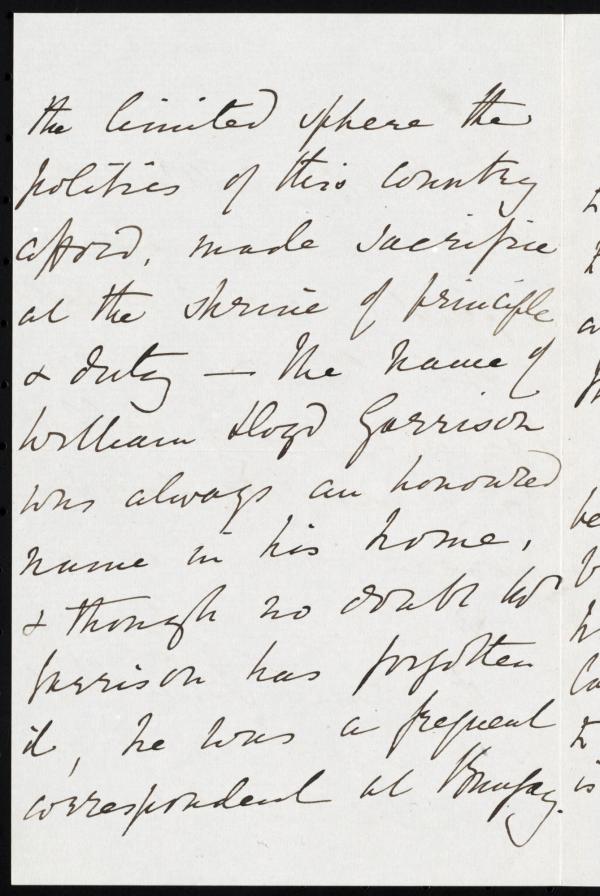 the limited sphere the
politics of this country
afford, made sacrifice
at the shrine of principle
& duty — The name of
William Lloyd Garrison
was always an honoured
name in his home,
& though no doubt Mr
Garrison has forgotten
it, he was a frequent
correspondent at